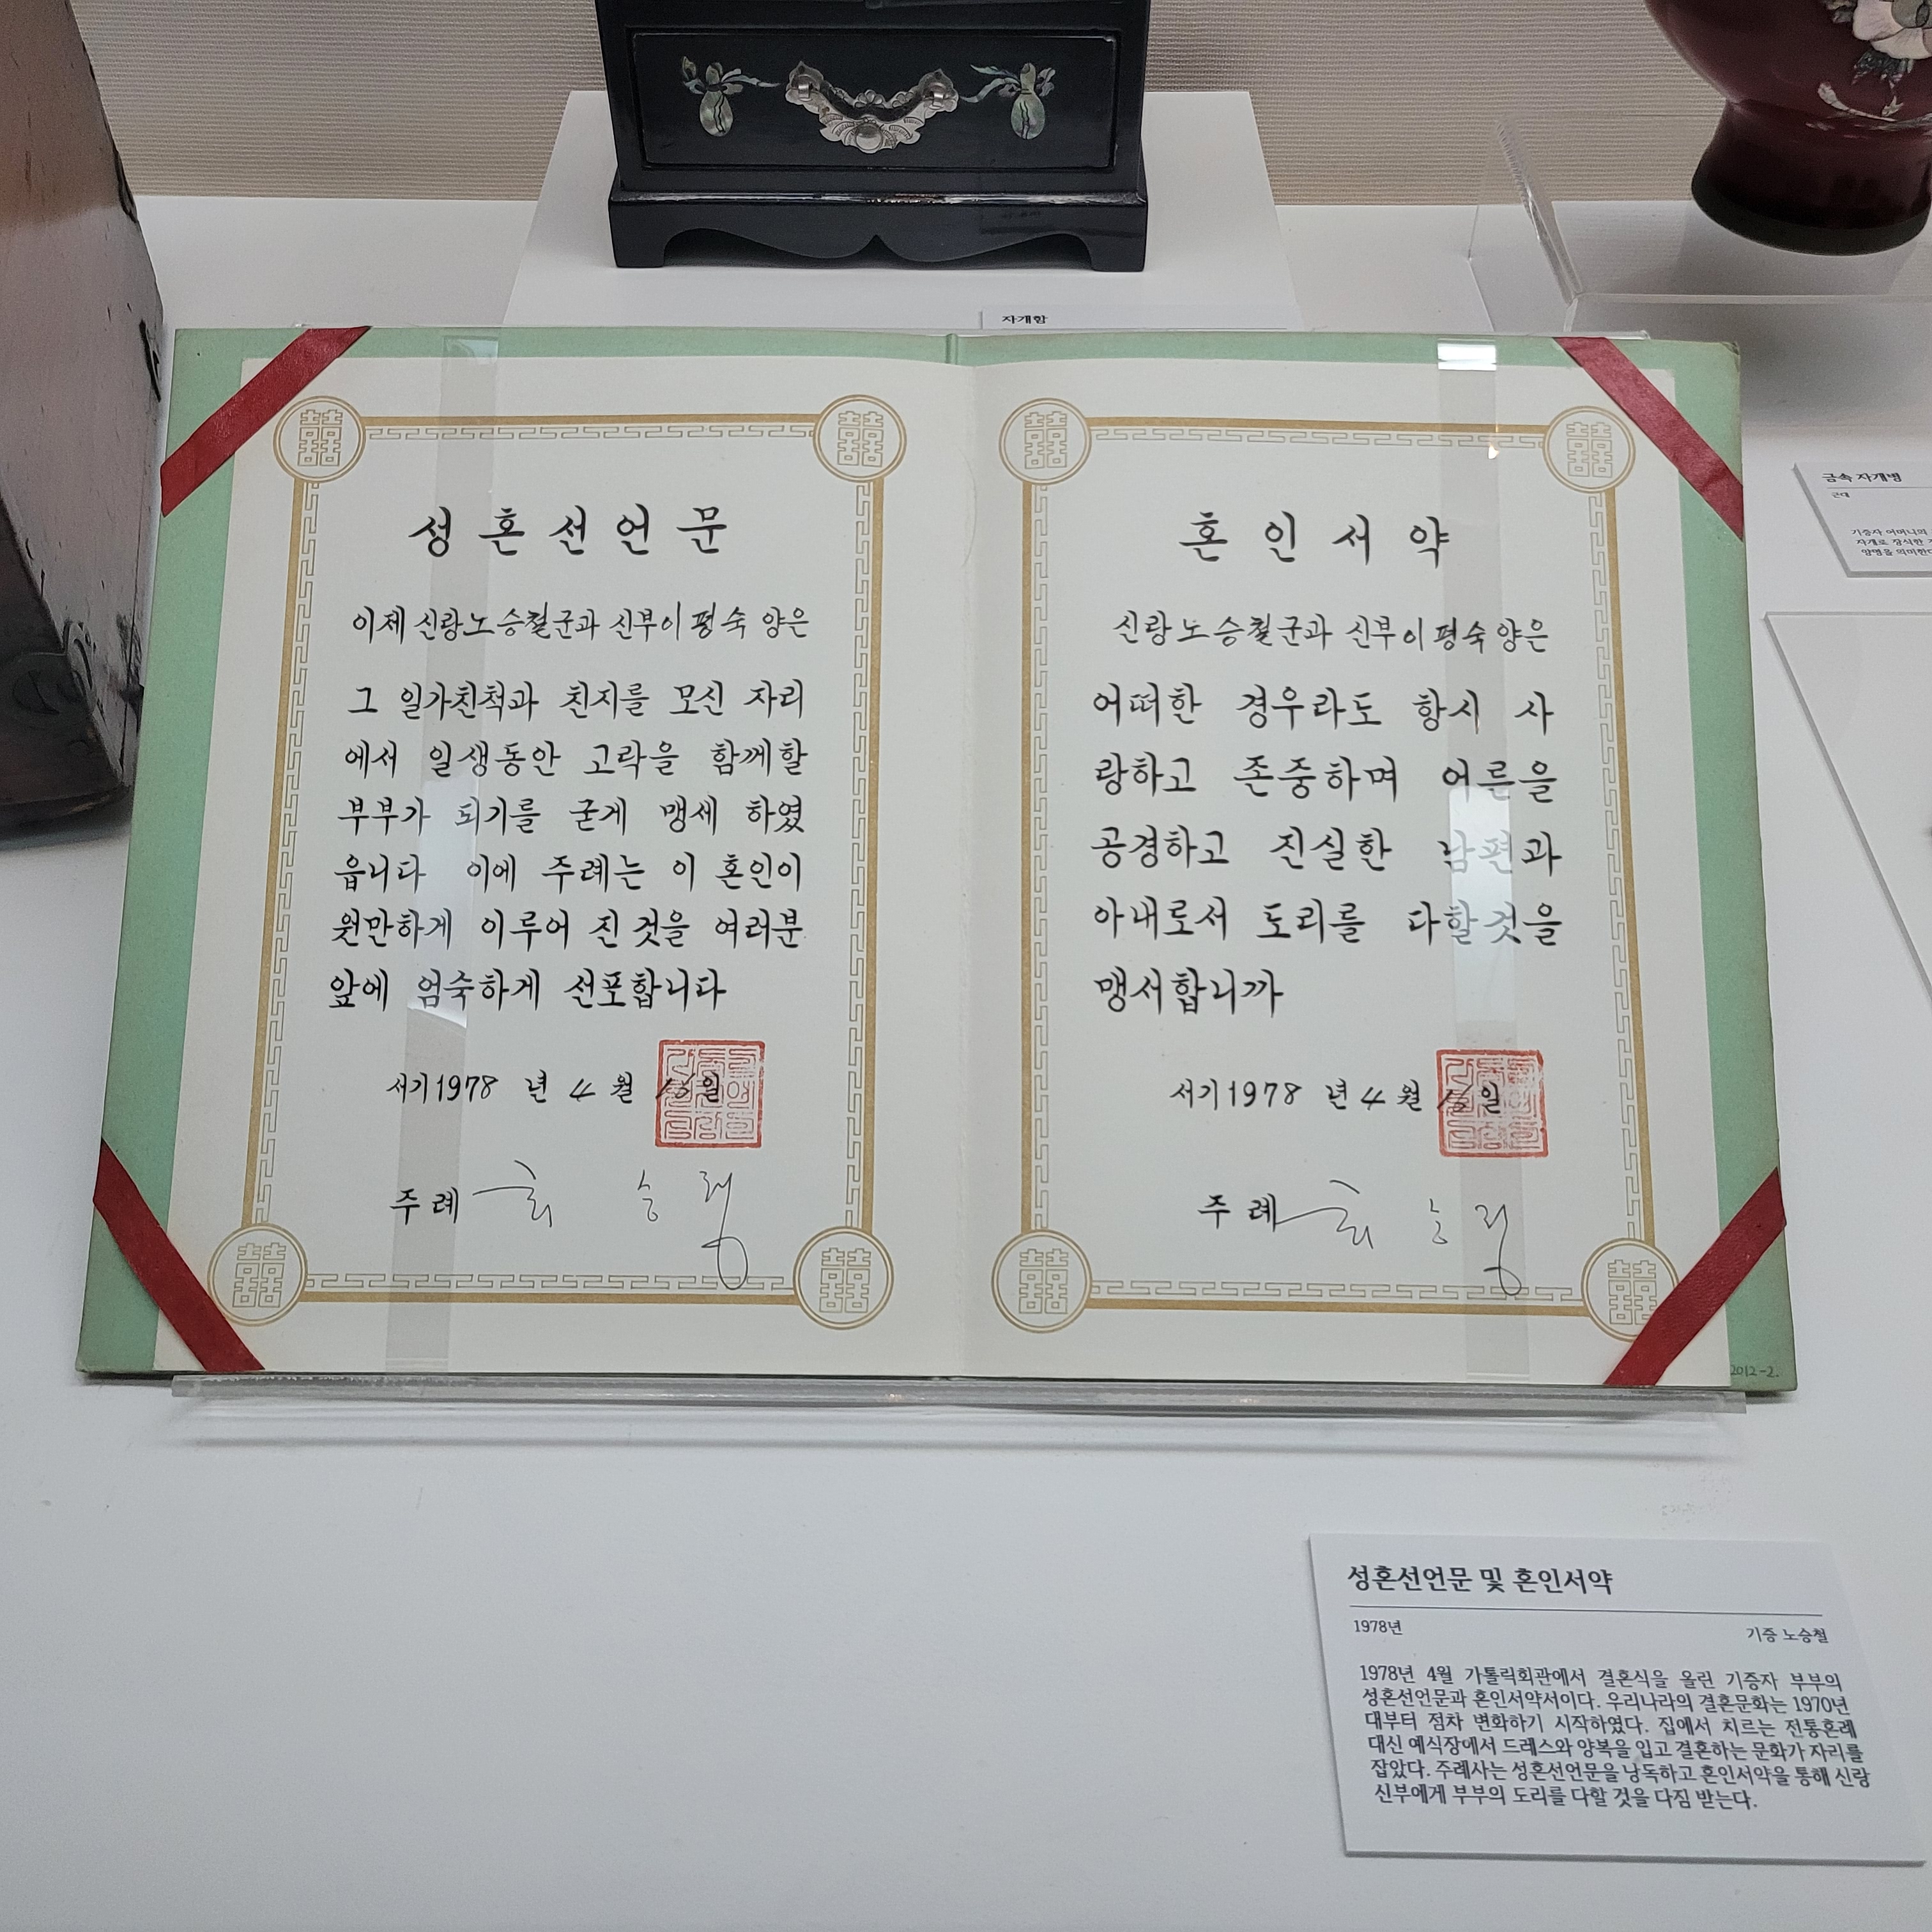 자개함
성혼선언문
이제 신랑노승철군과 신부이평숙 양은
그 일가친척과 친지를 모신 자리
에서 일생동안 고락을 함께할
부부가 되기를 굳게 맹세 하였
읍니다 이에 주례는 이 혼인이
원만하게 이루어 진 것을 여러분
앞에 엄숙하게 선포합니다
서기1978 년 4 월 16일
주례
혼인서약
신랑노승철군과 신부이평숙양은
어떠한 경우라도 항시 사
랑하고 존중하며 어른을
공경하고 진실한 남편과
아내로서 도리를 다할것을
맹서합니까
서기1978 년 4 월 16 일
주례
2012-2.
금속 자개병
근대
기증자 어머니의
자개로 장식한
성혼선언문 및 혼인서약
1978년
기증 노승철
1978년 4월 가톨릭회관에서 결혼식을 올린 기증자 부부의
성혼선언문과 혼인서약서이다. 우리나라의 결혼문화는 1970년
대부터 점차 변화하기 시작하였다. 집에서 치르는 전통혼례
대신 예식장에서 드레스와 양복을 입고 결혼하는 문화가 자리를
잡았다. 주례사는 성혼선언문을 낭독하고 혼인서약을 통해 신랑
신부에게 부부의 도리를 다할 것을 다짐 받는다.